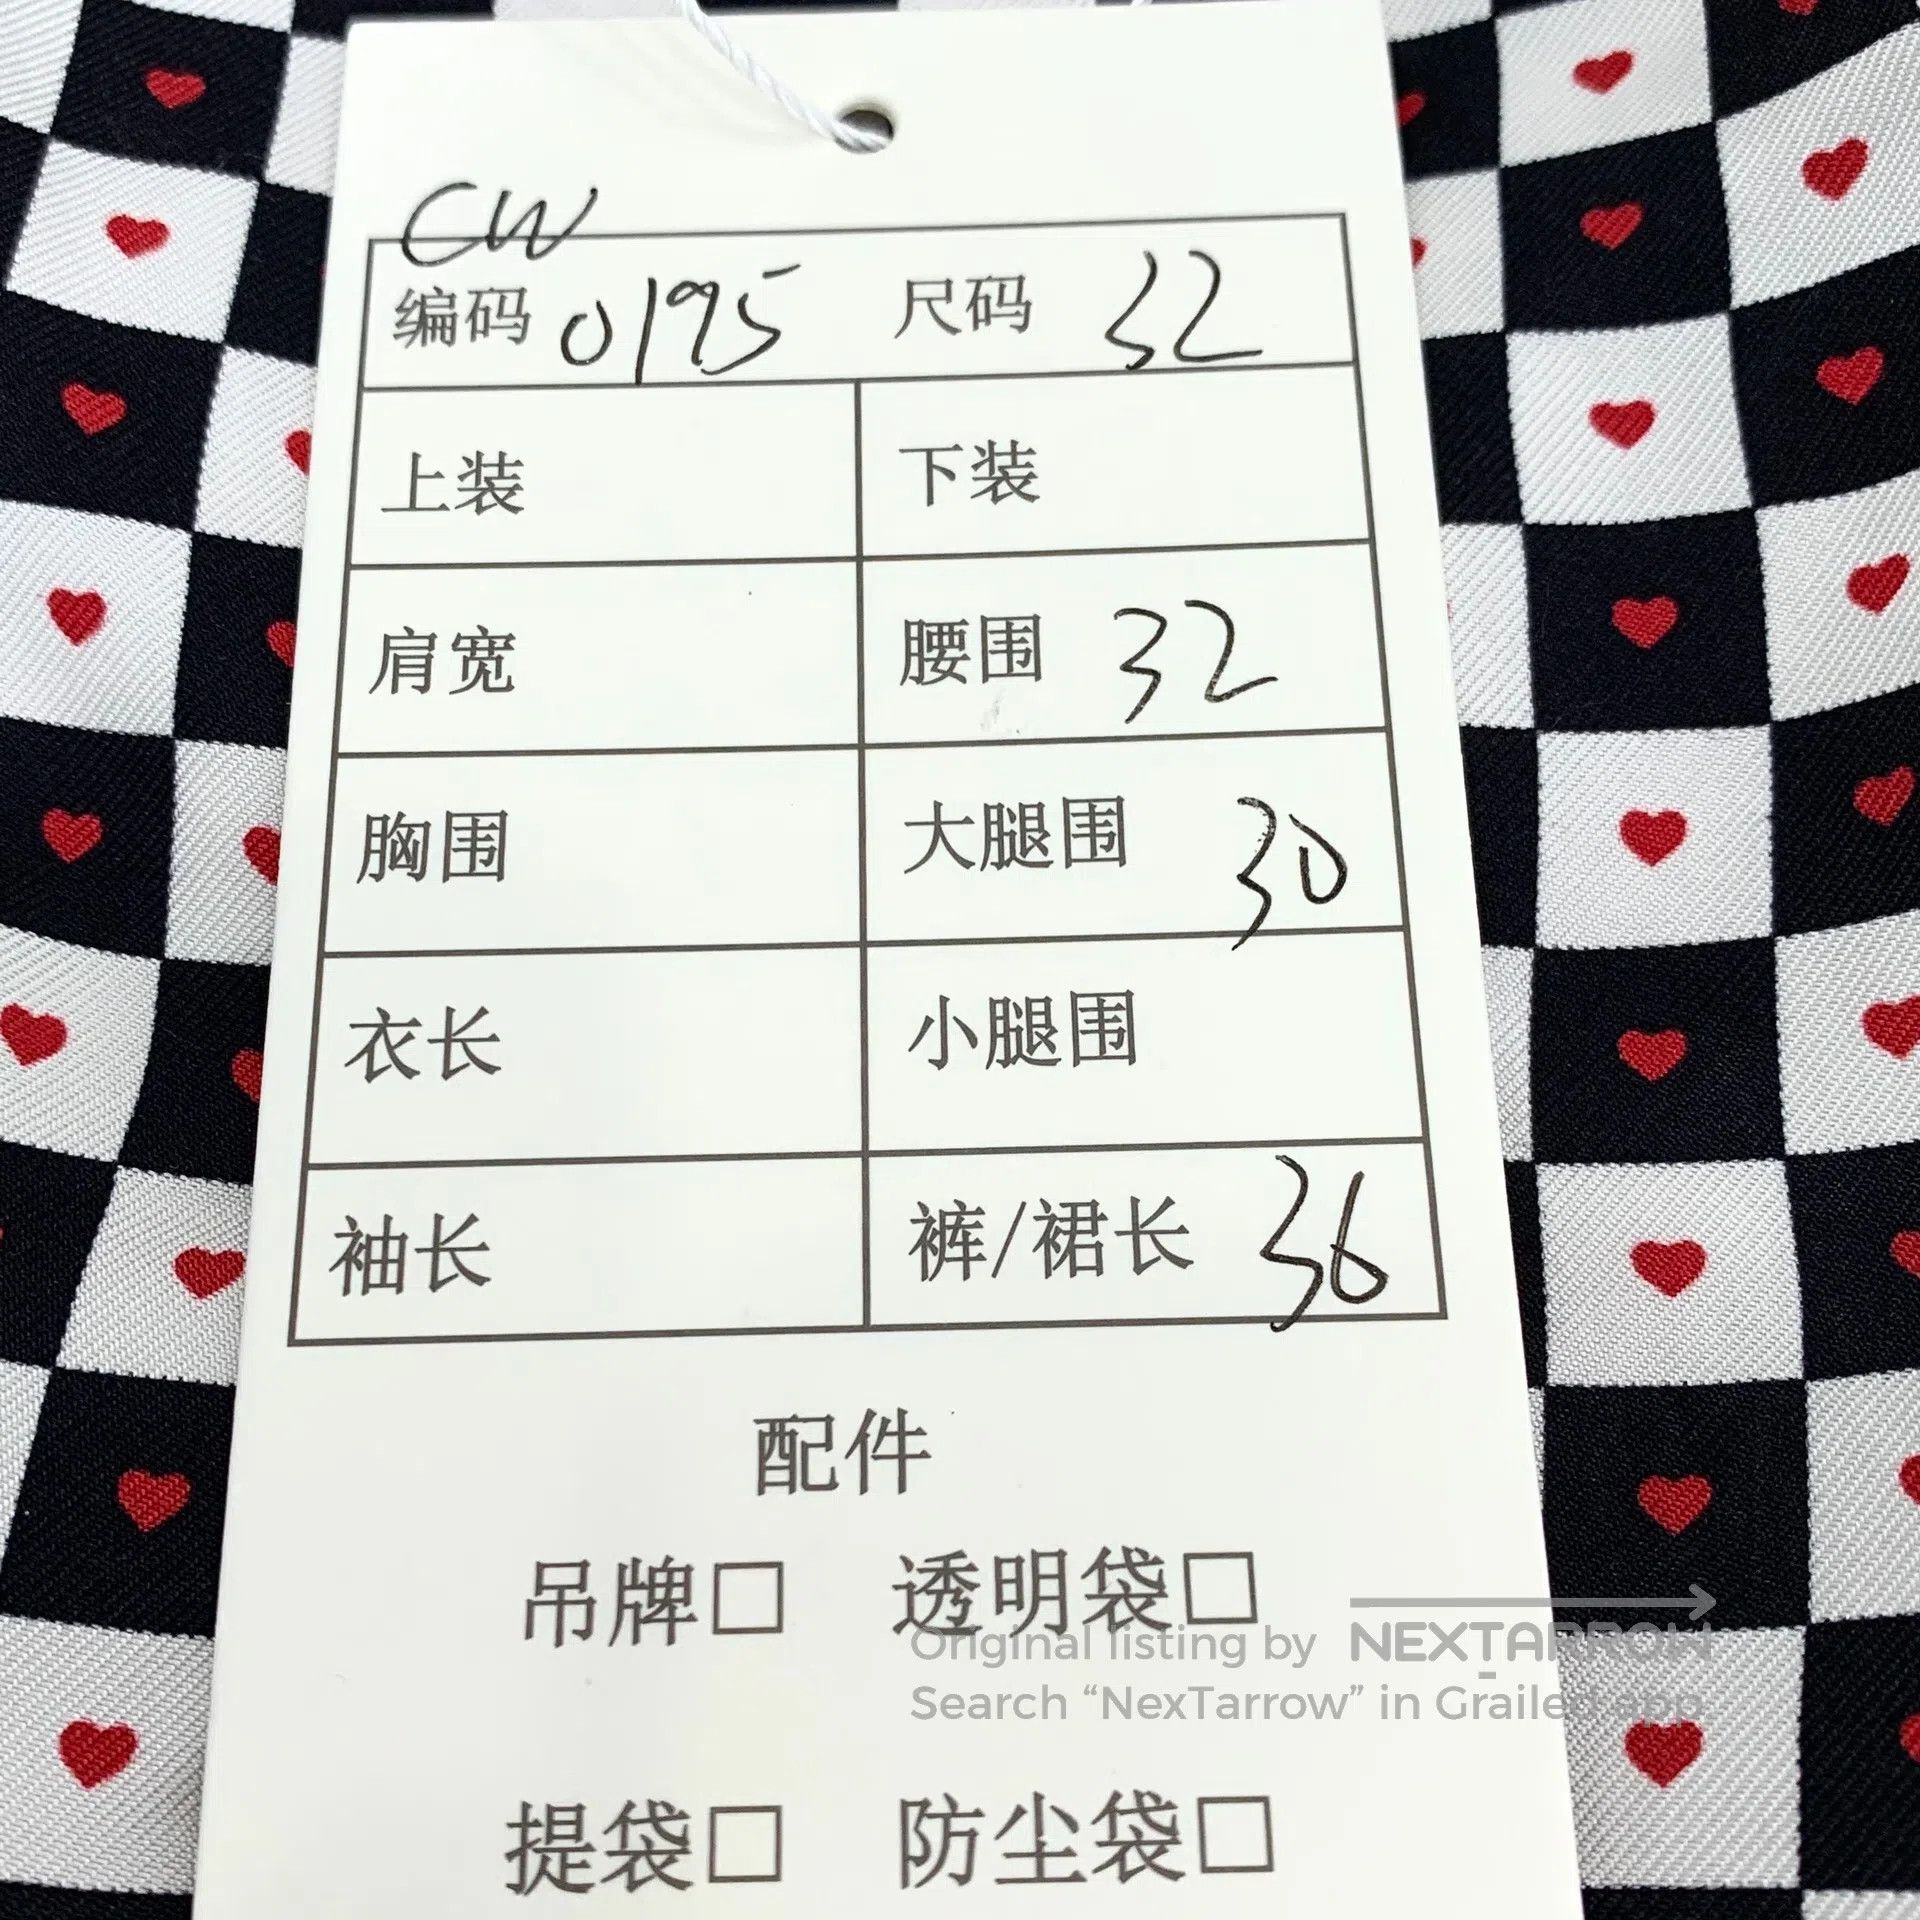 CW
编码 0195 尺码 32
上装 下装
肩宽 腰围 32
胸围 大腿围 30
衣长 小腿围
袖长 裤/裙长 36
配件
吊牌□ 透明袋□
Original listing by NEXTARROW
Search “NexTarrow” in Grailed app.
提袋□ 防尘袋□